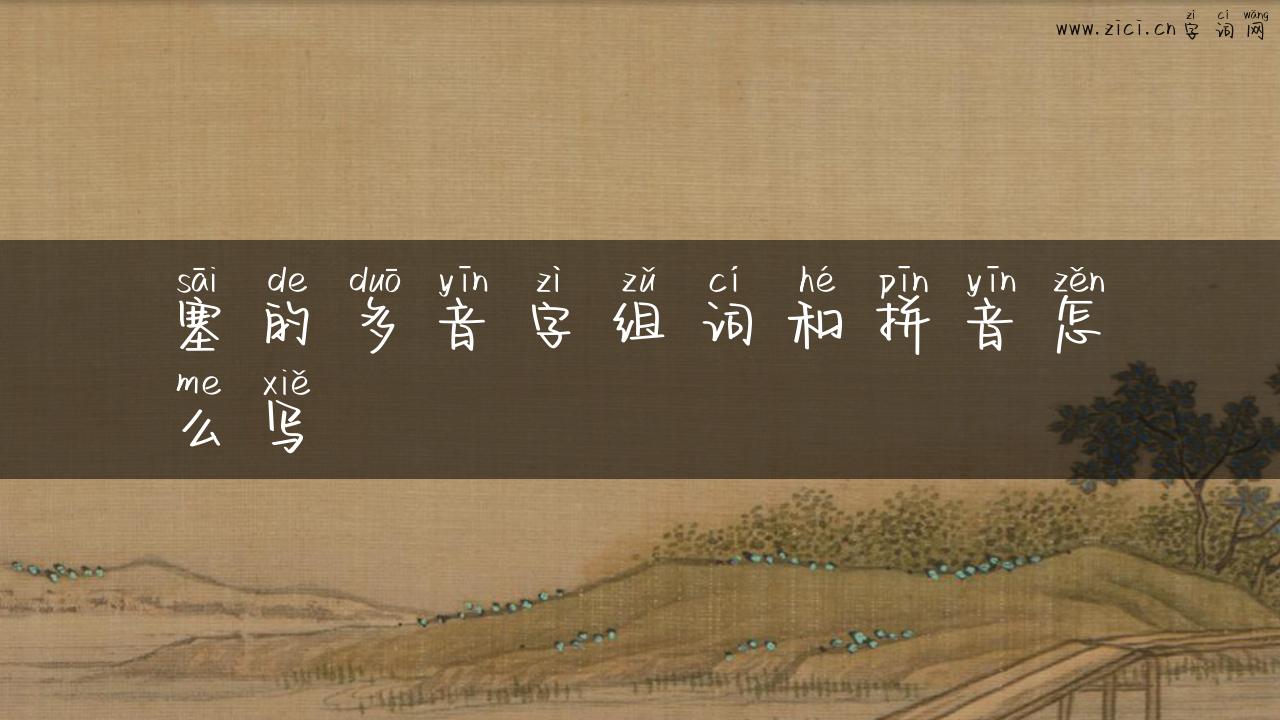 zì cí wǎng
www.zici.cn字词网
sāi de duō yīn zì zǔ cí hé pīn yīn zěn
塞的多音字组词和拼音怎
me xiě
么写